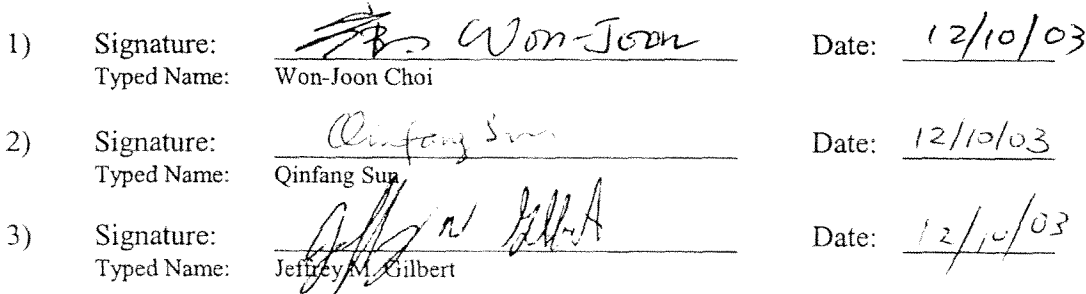 1) Signature: Won-Joon Date: 12/10/03
Typed Name: Won-Joon Choi
2) Signature: Qinfang Sun Date: 12/10/03
Typed Name: Qinfang Sun
3) Signature: Jeffrey M Gilbert Date: 12/10/03
Typed Name: Jeffrey M. Gilbert